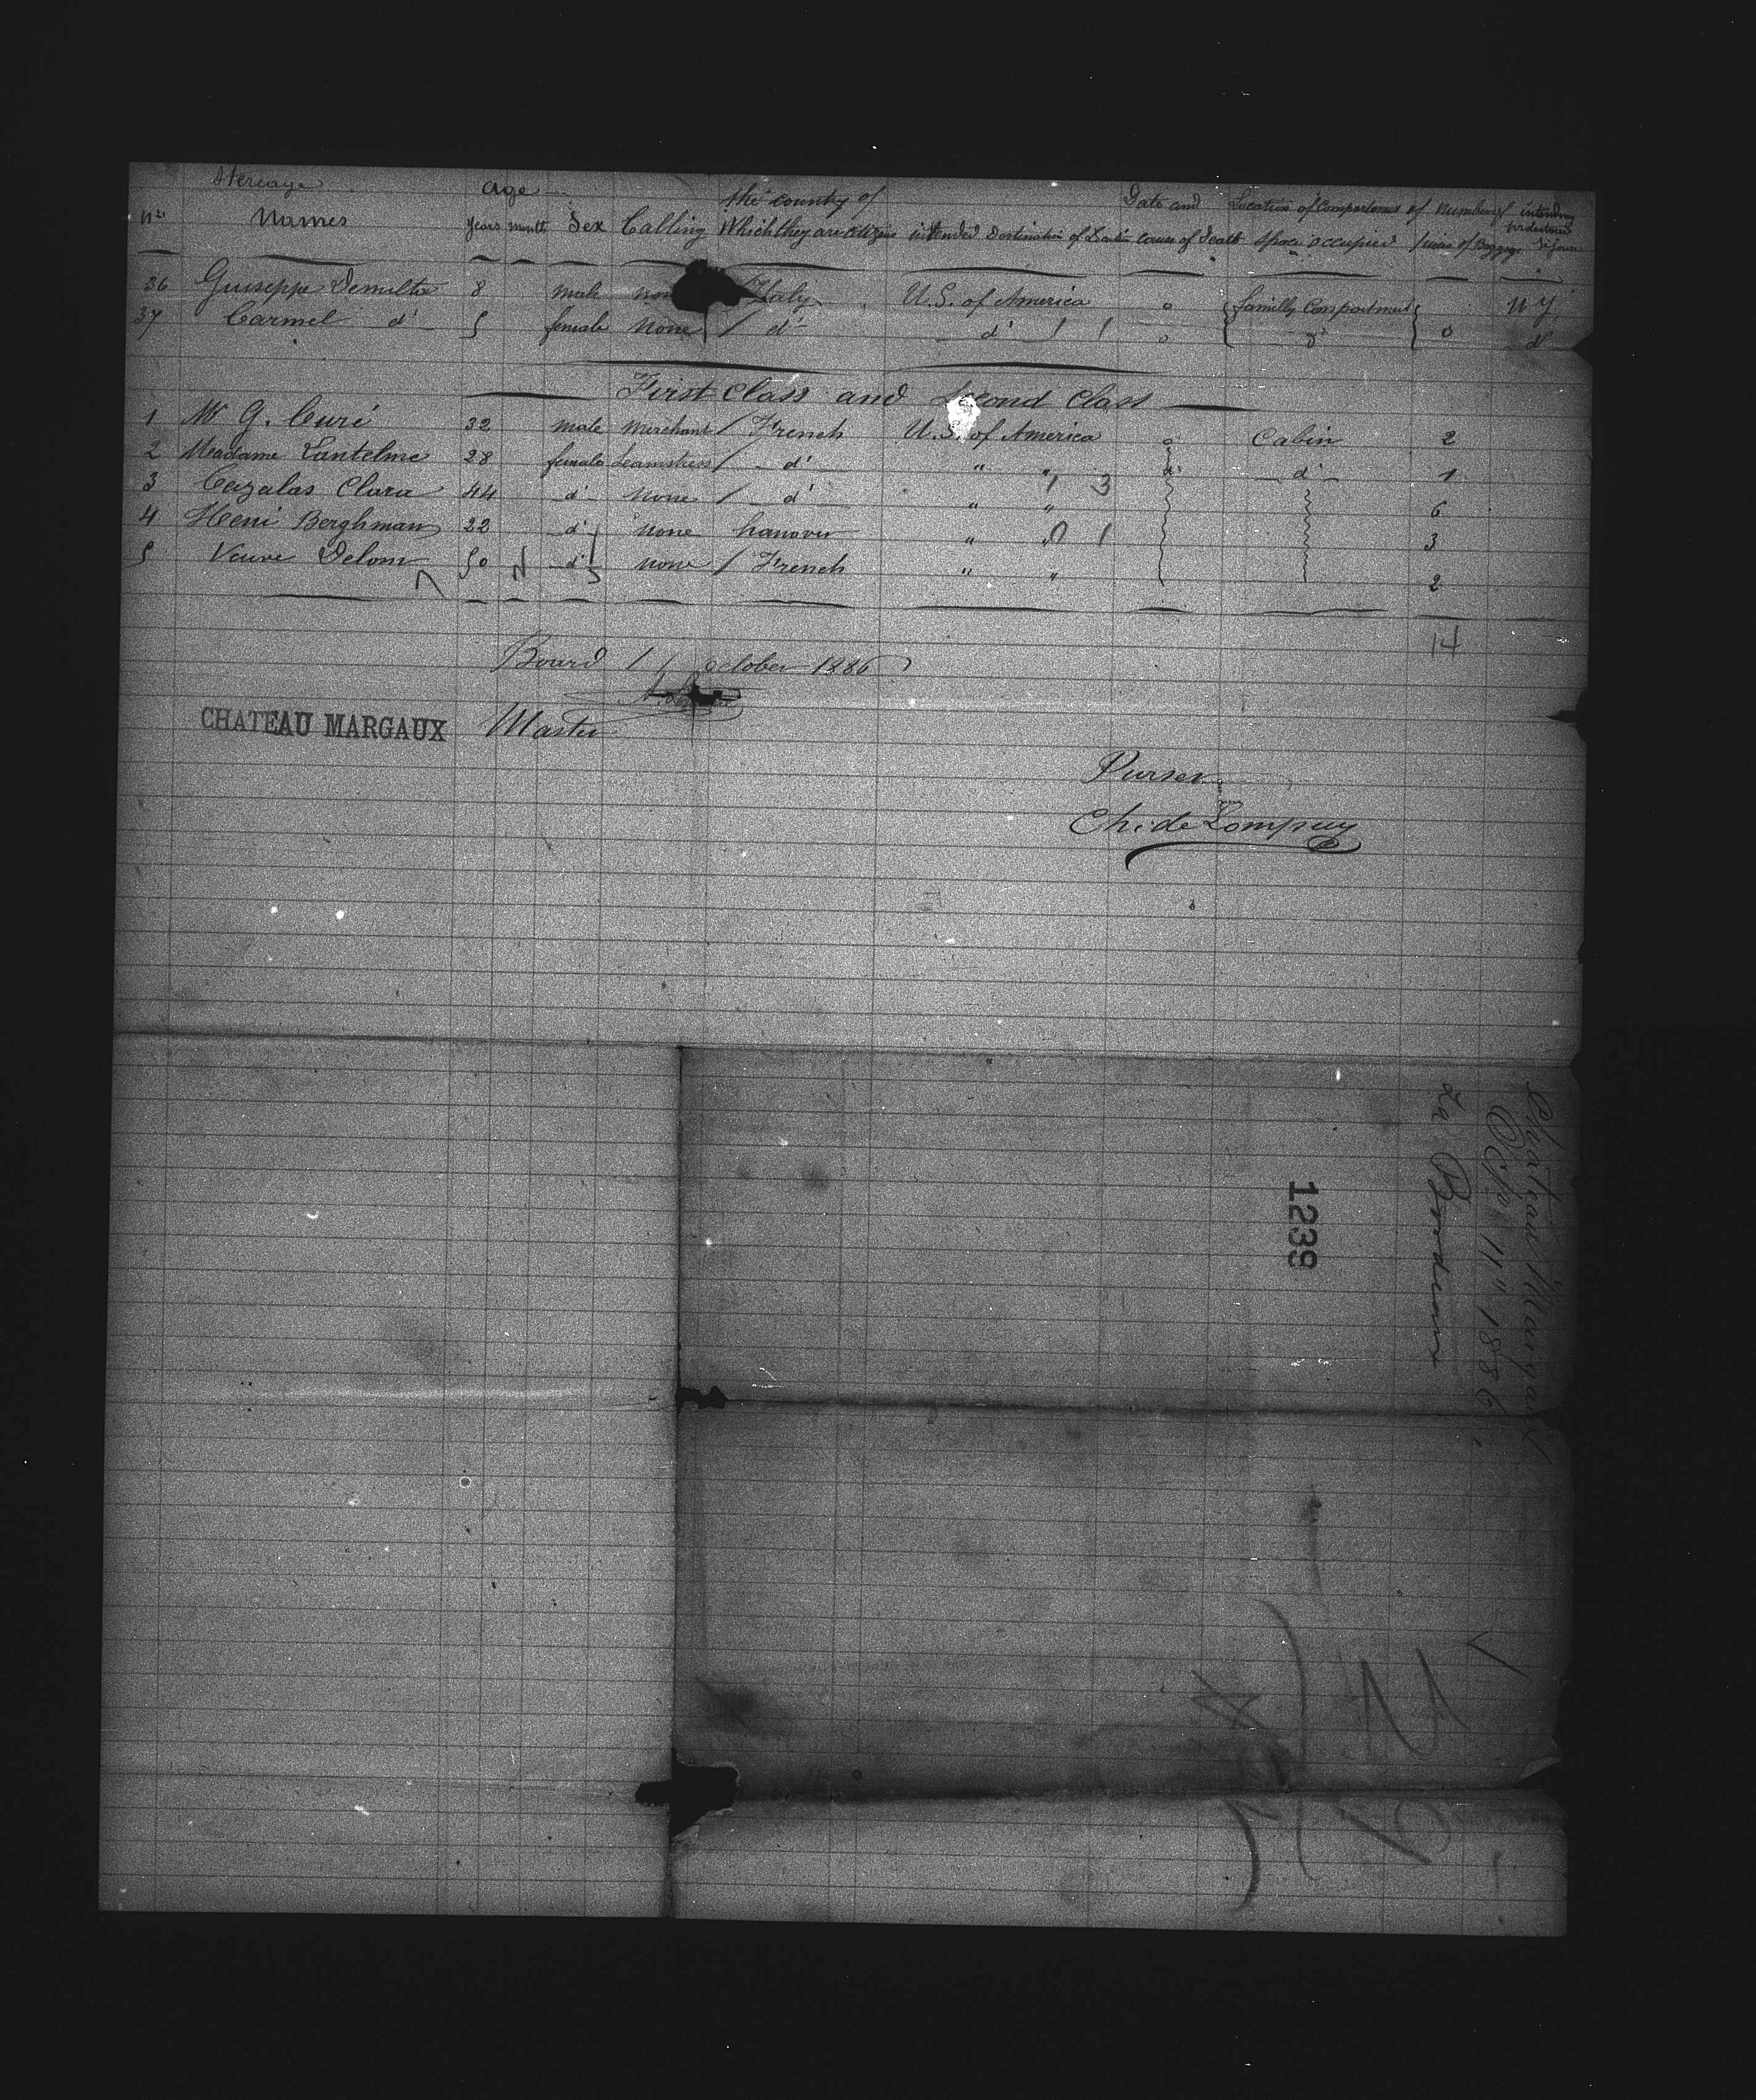 Stereage age the country of Date and Location of Compartment of Number of intending
Nos Names Years month Sex Calling Which they are citizens intended Destination of Location cause of Death Space occupied pieces of Baggage
36 Giuseppe Demilta 8 male Italy U.S. of America o familly Compartment N Y
37 Carmel d° 5 female none / d° d° o d° o d°
First Class and Second Class
1 Mr G. Curé 32 male merchant / French U.S. of America o Cabin 2
2 Madame Lantelme 28 female seamstress / d° " " d° d° 1
3 Cazalas Clara 44 d° none / d° " " 3 6
4 Heni Berghman 22 d° none hanover " " 3
5 Veuve Delom 50 d° none / French " " 2
14
Bourd 11 october 1886
CHATEAU MARGAUX Master
Purser
Ch. de Lompuy
Chateau Margaux
11" 1886
1239